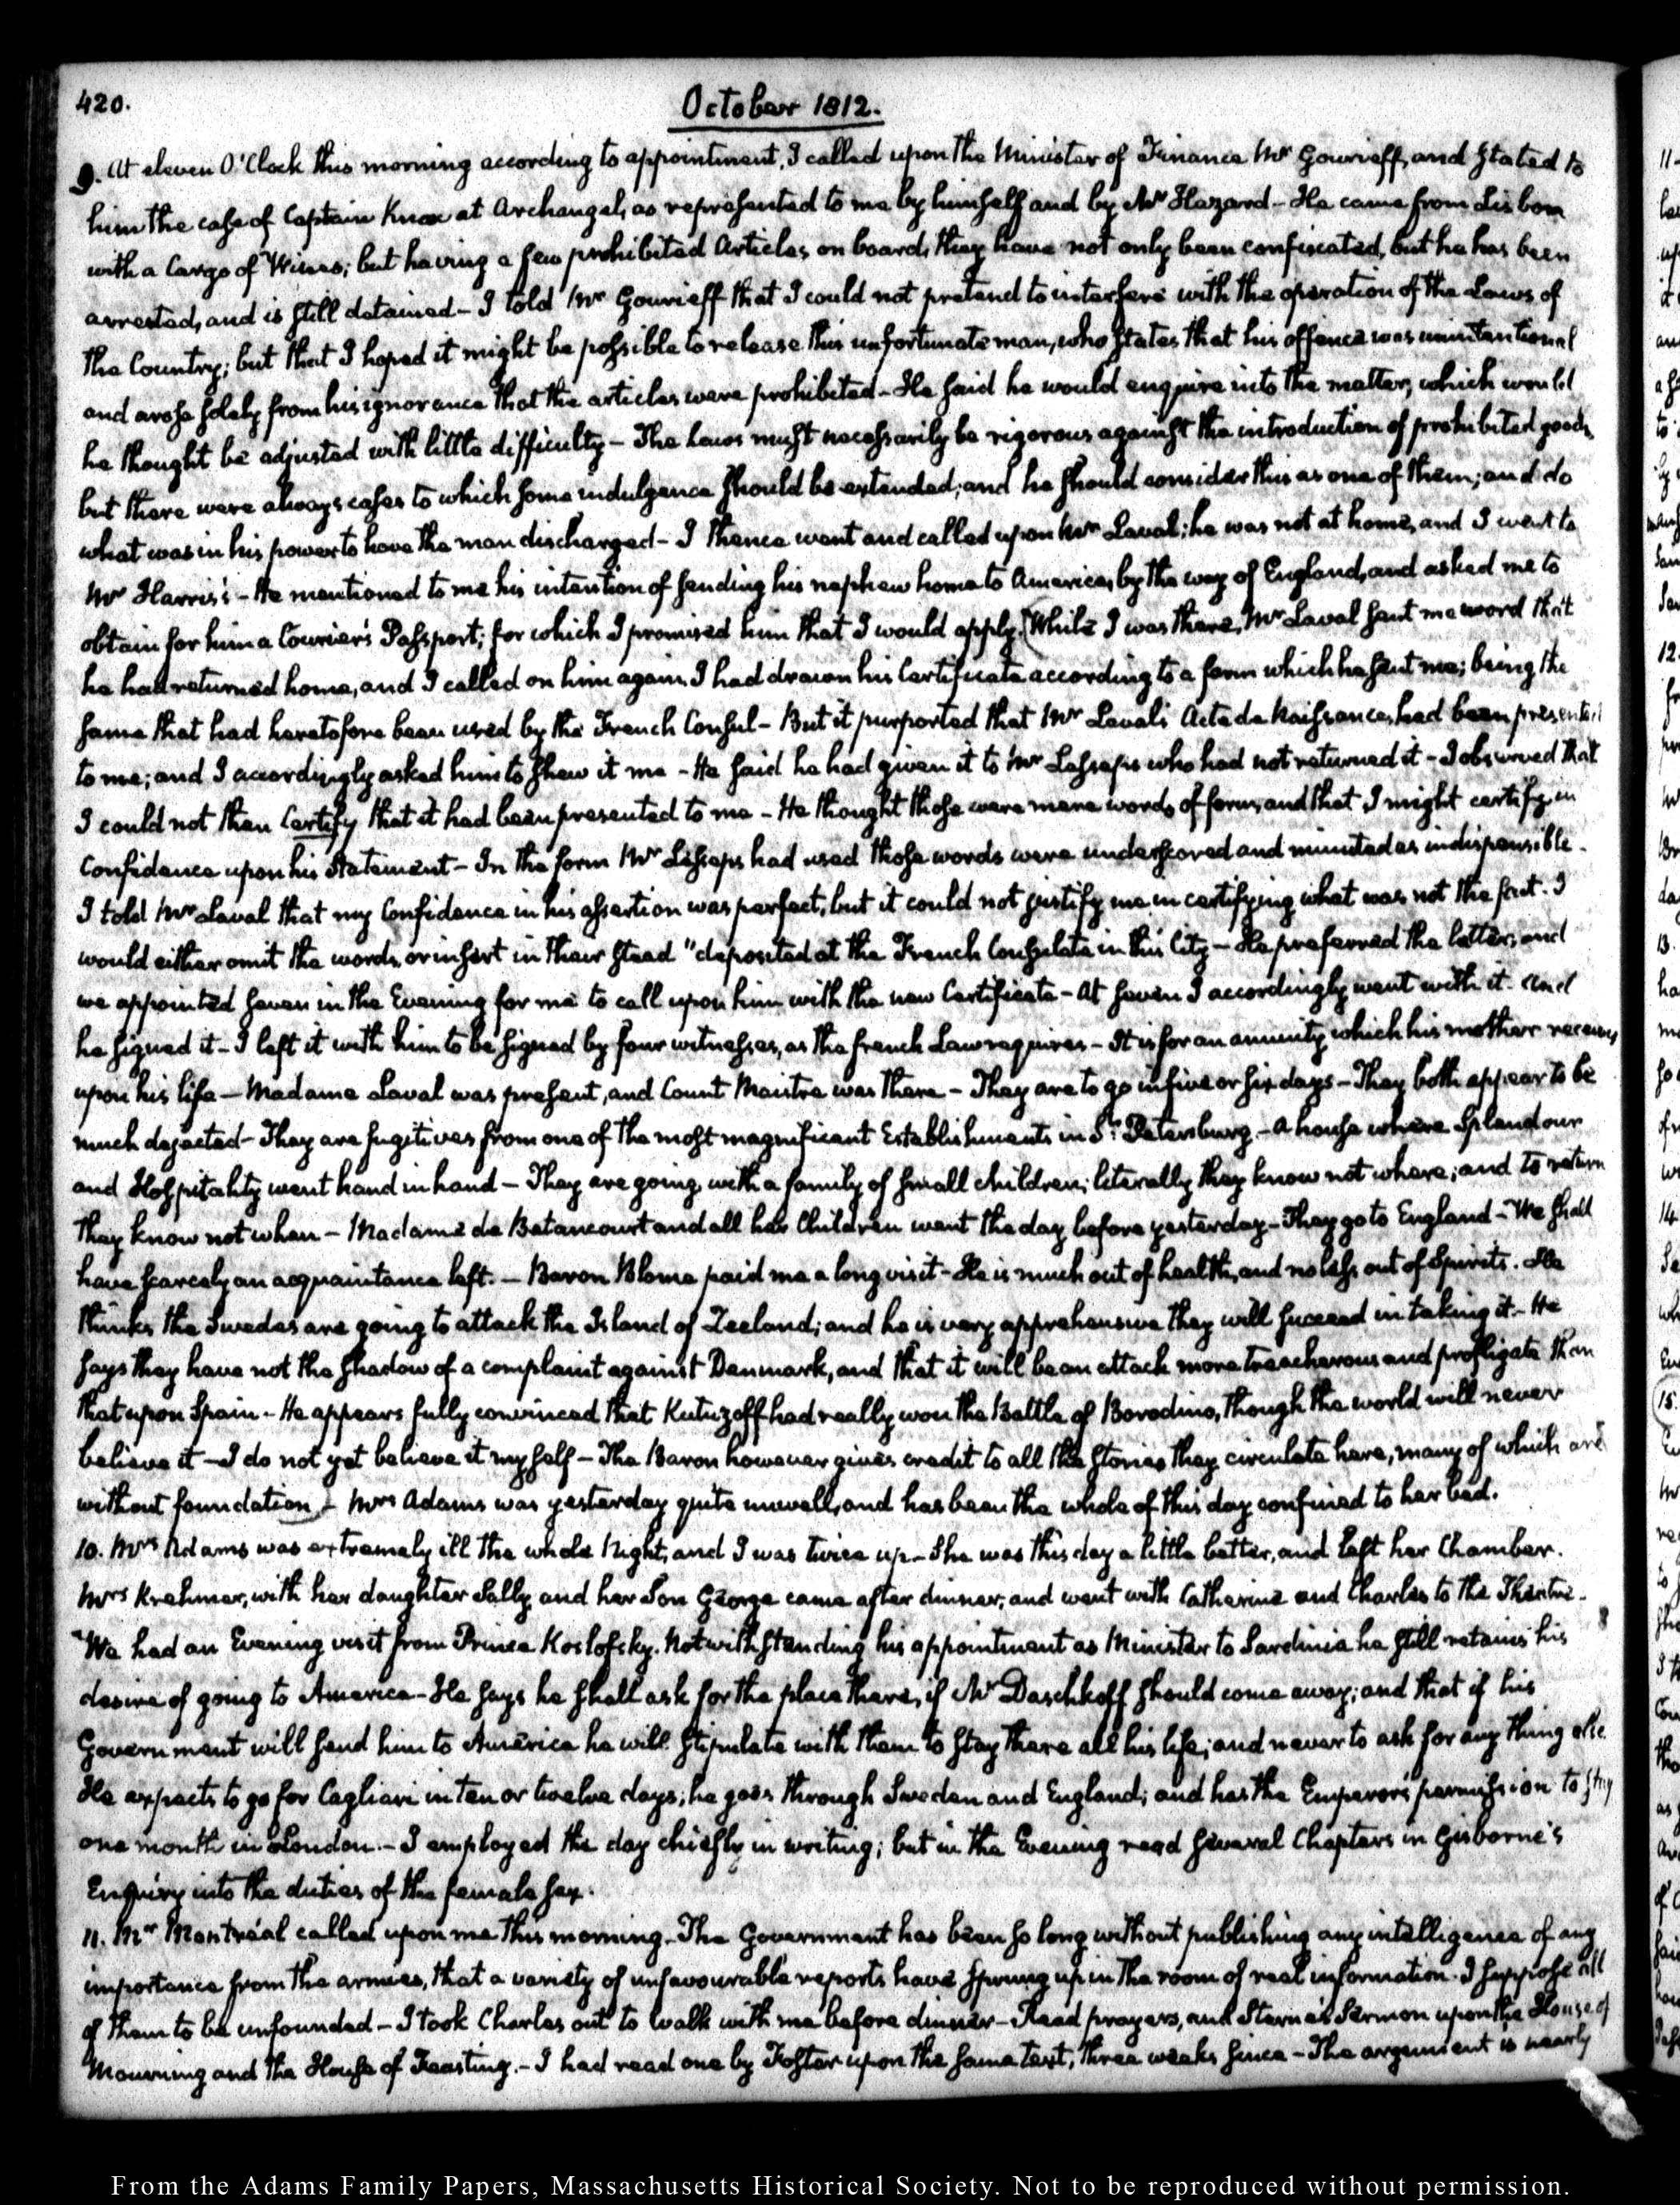 420.
October 1812.
9. At eleven O'Clock this morning according to appointment, I called upon the Minister of Finance Mr Gourieff, and stated to
him the case of Captain Knox at Archangel, as represented to me by himself and by Mr Hazard - He came from Lisbon
with a Cargo of Wines; but having a few prohibited Articles on board, they have not only been confiscated, but he has been
arrested, and is still detained - I told Mr Gourieff that I could not pretend to interfere with the operation of the Laws of
the Country; but that I hoped it might be possible to release this unfortunate man, who states that his offence was unintentional
and arose solely from his ignorance that the articles were prohibited - He said he would enquire into the matter, which would
he thought be adjusted with little difficulty - The Laws must necessarily be rigorous against the introduction of prohibited goods,
but there were always cases to which some indulgence should be extended; and he should consider this as one of them; and do
what was in his power to have the man discharged - I thence went and called upon Mr Laval; he was not at home, and I went to
Mr Harris's - He mentioned to me his intention of sending his nephew home to America, by the way of England, and asked me to
obtain for him a Courier's Passport; for which I promised him that I would apply. While I was there, Mr Laval sent me word that
he had returned home, and I called on him again. I had drawn his Certificate according to a form which he sent me; being the
same that had heretofore been used by the French Consul - But it purported that Mr Laval's Acte de Naissance, had been presented
to me; and I accordingly asked him to shew it me - He said he had given it to Mr Lesseps who had not returned it - I observed that
I could not then Certify that it had been presented to me - He thought those were mere words of form, and that I might certify in
Confidence upon his Statement - In the form Mr Lesseps had used those words were underscored and minuted as indispensible -
I told Mr Laval that my Confidence in his assertion was perfect, but it could not justify me in certifying what was not the fact. I
would either omit the words, or insert in their stead "deposited at the French Consulate in this City - He preferred the latter; and
we appointed seven in the Evening for me to call upon him with the new Certificate - At seven I accordingly went with it. And
he signed it - I left it with him to be signed by four witnesses, as the french Law requires - It is for an annuity, which his mother receives
upon his life - Madame Laval was present, and Count Maistre was there - They are to go in five or six days - They both appear to be
much dejected - They are fugitives from one of the most magnificent Establishments in St. Petersburg. - A house where Splendour
and Hospitality went hand in hand - They are going with a family of small children; literally they know not where; and to return
they know not when - Madame de Betancourt and all her Children went the day before yesterday - They go to England - We shall
have scarcely an acquaintance left. - Baron Blome paid me a long visit - He is much out of health, and no less out of Spirits. He
thinks the Swedes are going to attack the Island of Zeeland; and he is very apprehensive they will succeed in taking it - He
says they have not the shadow of a complaint against Denmark, and that it will be an attack more treacherous and profligate than
that upon Spain - He appears fully convinced that Kutuzoff had really won the Battle of Borodino, though the world will never
believe it - I do not yet believe it myself - The Baron however gives credit to all the stories they circulate here, many of which are
without foundation - Mrs Adams was yesterday quite unwell, and has been the whole of this day confined to her bed.
10. Mrs Adams was extremely ill the whole Night, and I was twice up - She was this day a little better, and left her Chamber.
Mrs Krehmer, with her daughter Sally, and her Son George came after dinner, and went with Catherine and Charles to the Theatre.
We had an Evening visit from Prince Koslofsky. Notwithstanding his appointment as Minister to Sardinia he still retains his
desire of going to America - He says he shall ask for the place there, if Mr Daschkoff should come away; and that if his
Government will send him to America he will stipulate with them to stay there all his life; and never to ask for any thing else.
He expects to go for Cagliari in ten or twelve days; he goes through Sweden and England; and has the Emperor's permission to stay
one month in London. - I employed the day chiefly in writing; but in the Evening read several Chapters in Gisborne's
Enquiry into the duties of the female sex.
11. Mr Montréal called upon me this morning - The Government has been so long without publishing any intelligence of any
importance from the armies, that a variety of unfavourable reports have sprung up in the room of real information. I suppose all
of them to be unfounded - I took Charles out to walk with me before dinner - Read prayers, and Sterne's Sermon upon the House of
Mourning and the House of Feasting. - I had read one by Foster upon the same text, three weeks since - The argument is nearly
From the Adams Family Papers, Massachusetts Historical Society. Not to be reproduced without permission.